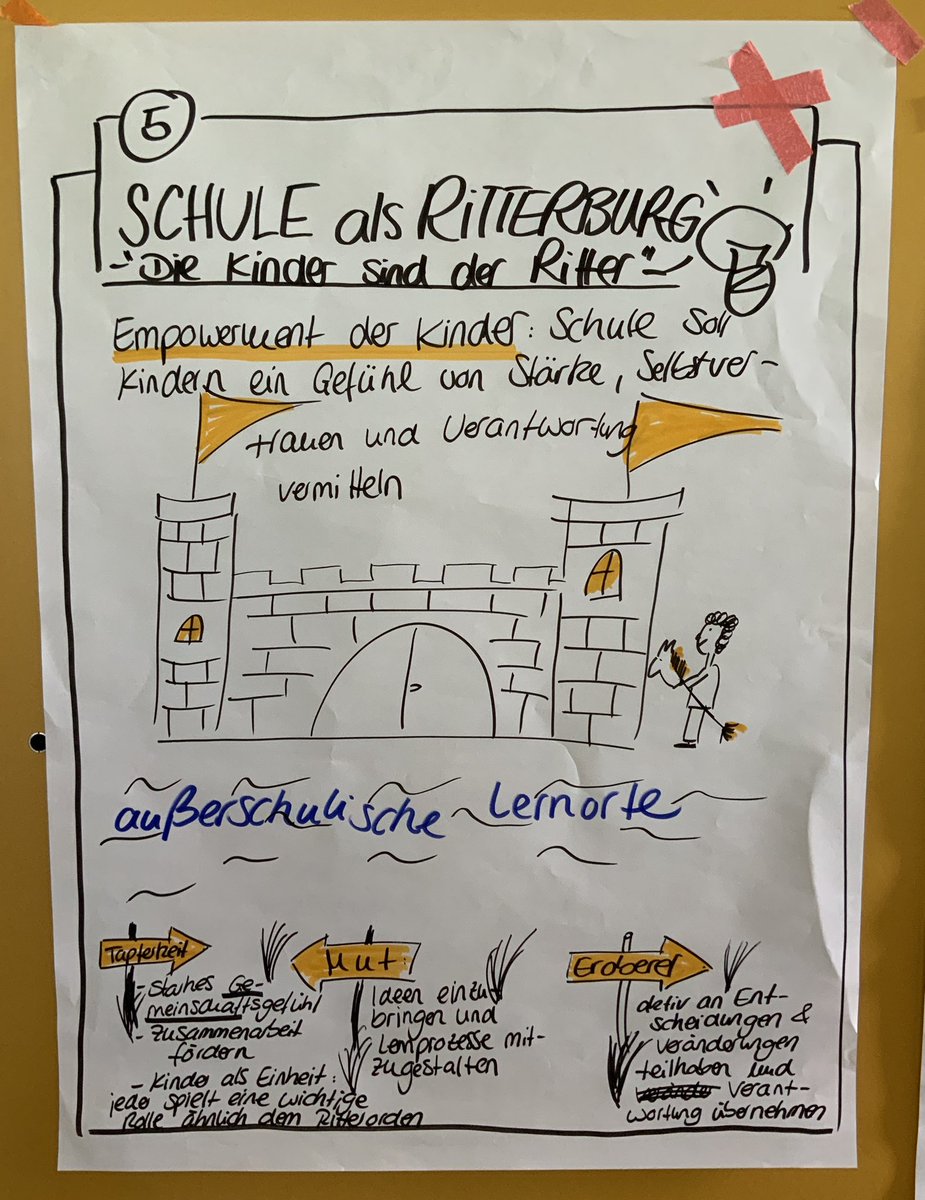 5
SCHULE als RITTERBURG
-"Die Kinder sind der Ritter"-
Empowerment der Kinder: Schule soll
Kindern ein Gefühl von Stärke, Selbstver-
trauen und Verantwortung
vermitteln
außerschulische Lernorte
Tapferkeit
- Starkes Ge-
meinschaftsgefühl
- Zusammenarbeit
fördern
- Kinder als Einheit:
jeder spielt eine wichtige
Rolle ähnlich dem Ritterorden
Mut:
Ideen einzu
bringen und
Lernprozesse mit-
zugestalten
Eroberer
aktiv an Ent-
scheidungen &
veränderungen
teilhaben und
Verant-
wortung übernehmen